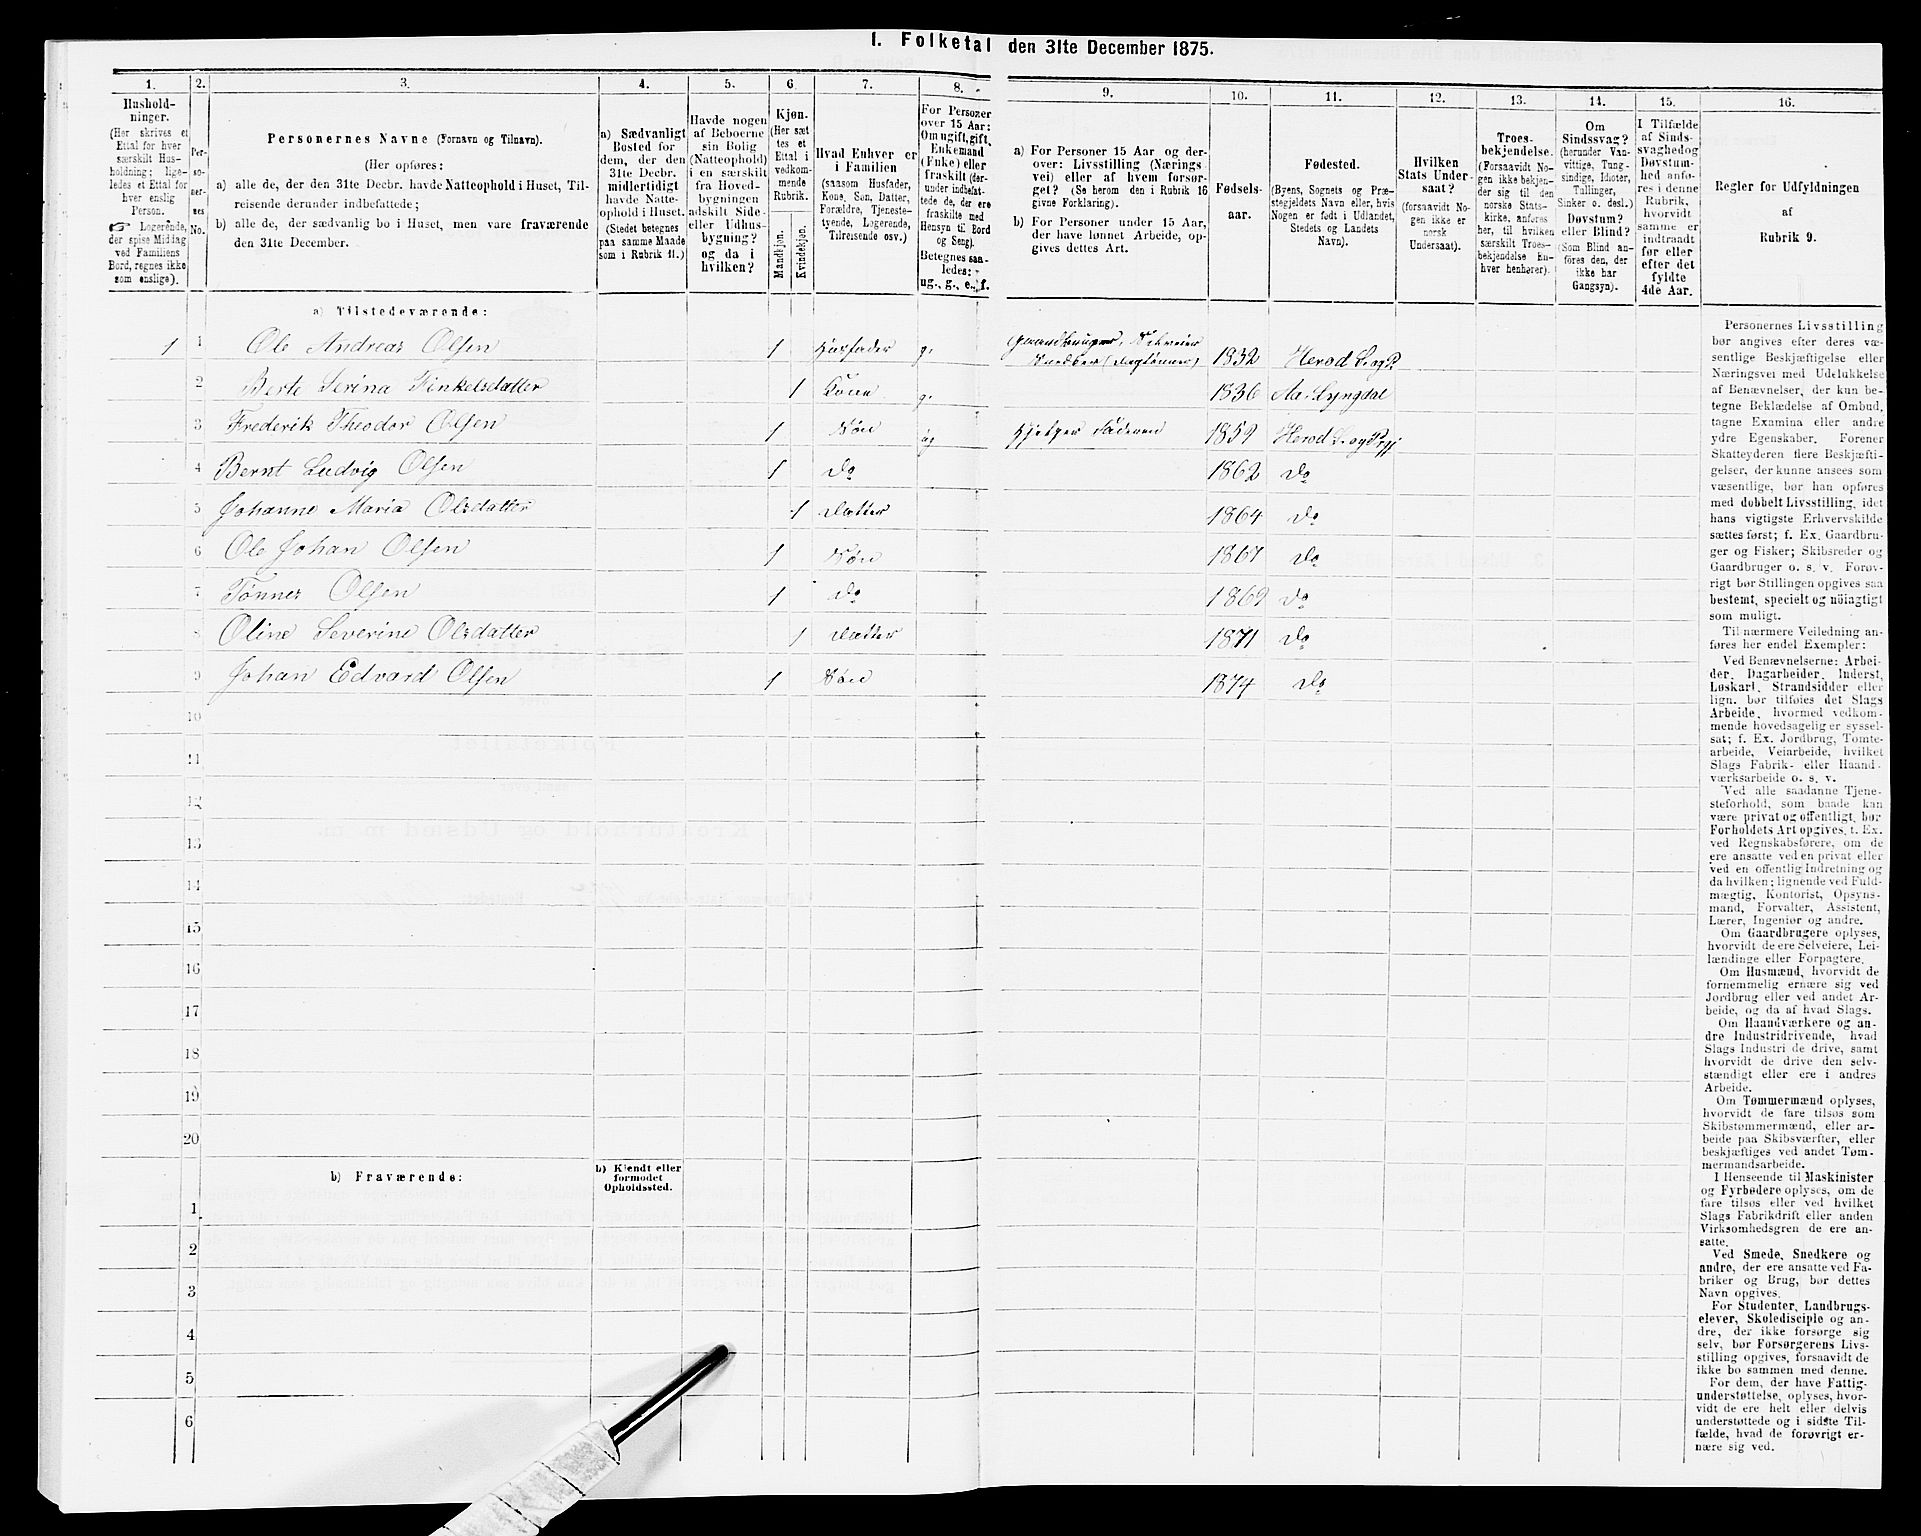 1. Folketal den 31te December 1875.
1. 2. 3. 4. 5. 6. 7. 8. 9. 10. 11. 12. 13. 14. 15. 16.
Hushold-
ninger.
(Her skrives et
Ettal for hver
særskilt Hus-
holdning; lige-
ledes et Ettal for
hver enslig
Person.
☞ Logerende,
der spise Middag
ved Familiens
Bord, regnes ikke
som enslige).
Per-
so-
ner-
nes
No.
Personernes Navne (Fornavn og Tilnavn).
(Her opføres:
a) alle de, der den 31te Decbr. havde Natteophold i Huset, Til-
reisende derunder indbefattede;
b) alle de, der sædvanlig bo i Huset, men vare fraværende
den 31te December.
a) Sædvanligt
Bosted for
dem, der den
31te Decbr.
midlertidigt
havde Natte-
ophold i Huset.
(Stedet betegnes
paa samme Maade
som i Rubrik 11.)
Havde nogen
af Beboerne
sin Bolig
(Natteophold)
i en særskilt
fra Hoved-
bygningen
adskilt Side-
eller Udhus-
bygning?
og da i
hvilken?
Kjøn.
(Her sæt-
tes et
Ettal i
vedkom-
mende
Rubrik.
Mandkjøn.
Kvindekjøn.
Hvad Enhver er
i Familien
(saasom Husfader,
Kone, Søn, Datter,
Forældre, Tjeneste-
tyende, Logerende,
Tilreisende osv.)
For Personer
over 15 Aar:
Om ugift, gift,
Enkemand
(Enke) eller
fraskilt (der-
under indbefat-
tede de, der ere
fraskilte med
Hensyn til Bord
og Seng).
Betegnes saa-
ledes:
ug., g., e., f.
a) For Personer 15 Aar og der-
over: Livsstilling (Nærings-
vei) eller af hvem forsør-
get? (Se herom den i Rubrik 16
givne Forklaring).
b) For Personer under 15 Aar,
der have lønnet Arbeide, op-
gives dettes Art.
Fødsels-
aar.
Fødested.
(Byens, Sognets og Præ-
stegjeldets Navn eller, hvis
Nogen er født i Udlandet,
Stedets og Landets
Navn).
Hvilken
Stats Under-
saat?
(forsaavidt No-
gen ikke er
norsk
Undersaat).
Troes-
bekjendelse.
(Forsaavidt No-
gen ikke bekjen-
der sig til den
norske Stats-
kirke, anføres
her, til hvilken
særskilt Troes-
bekjendelse En-
hver henhører).
Om
Sindssvag?
(herunder Van-
vittige, Tung-
sindige, Idioter,
Tallinger,
Sinker o. desl.)
Døvstum?
eller Blind?
(Som Blind an-
føres den, der
ikke har
Gangsyn).
I Tilfælde
af Sinds-
svaghed og
Døvstum-
hed anfø-
res i denne
Rubrik,
hvorvidt
samme er
indtraadt
før eller
efter det
fyldte
4de Aar.
Regler for Udfyldningen
af
Rubrik 9.
a) Tilstedeværende:
1 1 Ole Andreas Olsen 1 Husfader g. Gaardbruger, Selveier
Snedker (Dagtømmer) 1832 Herod S. og P.
2 Berte Serina Tinkelsdatter 1 Kone g. 1836 Aa. Lyngdal
3 Frederik Theodor Olsen 1 Søn ug Hjelper Faderen 1859 Herod S. og Prgj
4 Bernt Ludvig Olsen 1 Do 1862 Do
5 Johanne Maria Olsdatter 1 Datter 1864 Do
6 Ole Johan Olsen 1 Søn 1867 Do
7 Tønnes Olsen 1 Do 1869 Do
8 Oline Severine Olsdatter 1 Datter 1871 Do
9 Johan Edvard Olsen 1 Søn 1874 Do
10
11
12
13
14
15
16
17
18
19
20
b) Fraværende:
b) Kjendt eller
formodet
Opholdssted.
1
2
3
4
5
6
Personernes Livsstilling
bør angives efter deres væ-
sentlige Beskjæftigelse eller
Næringsvei med Udelukkelse
af Benævnelser, der kun be-
tegne Beklædelse af Ombud,
tagne Examina eller andre
ydre Egenskaber. Forener
Skatteyderen flere Beskjæfti-
gelser, der kunne ansees som
væsentlige, bør han opføres
med dobbelt Livsstilling, idet
hans vigtigste Erhvervskilde
sættes først; f. Ex. Gaardbru-
ger og Fisker; Skibsreder og
Gaardbruger o. s. v. Forøv-
rigt bør Stillingen opgives saa
bestemt, specielt og nöiagtigt
som muligt.
Til nærmere Veiledning an-
føres her endel Exempler:
Ved Benævnelserne: Arbei-
der, Dagarbeider, Inderst,
Løskarl, Strandsidder eller
lign. bør tilføies det Slags
Arbeide, hvormed vedkom-
mende hovedsagelig er syssel-
sat; f. Ex. Jordbrug, Tomte-
arbeide, Veiarbeide, hvilket
Slags Fabrik- eller Haand-
værksarbeide o. s. v.
Ved alle saadanne Tjene-
steforhold, som baade kan
være privat og offentligt, bør
Forholdets Art opgives, t. Ex.
ved Regnskabsførere, om de
ere ansatte ved en privat eller
ved en offentlig Indretning og
da hvilken; lignende ved Fuld-
mægtig, Kontorist, Opsyns-
mand, Forvalter, Assistent,
Lærer, Ingeniør og andre.
Om Gaardbrugere oplyses,
hvorvidt de ere Selveiere, Lei-
lændinge eller Forpagtere.
Om Husmænd, hvorvidt de
fornemmelig ernære sig ved
Jordbrug eller ved andet Ar-
beide, og da af hvad Slags.
Om Haandværkere og an-
dre Industridrivende, hvad
Slags Industri de drive, samt
hvorvidt de drive den selv-
stændigt eller ere i andres
Arbeide.
Om Tømmermænd oplyses,
hvorvidt de fare tilsøs som
Skibstømmermænd, eller ar-
beide paa Skibsværfter, eller
beskjæftiges ved andet Tøm-
mermandsarbeide.
I Henseende til Maskinister
og Fyrbødere oplyses, om de
fare tilsøs eller ved hvilket
Slags Fabrikdrift eller anden
Virksomhedsgren de ere an-
satte.
Ved Smede, Snedkere og
andre, der ere ansatte ved Fa-
briker og Brug, bør dettes
Navn opgives.
For Studenter, Landbrugs-
elever, Skoledisciple og an-
dre, der ikke forsørge sig
selv, bør Forsørgerens Livs-
stilling opgives, forsaavidt de
ikke bo sammen med denne.
For dem, der have Fattig-
understøttelse, oplyses, hvor-
vidt de ere helt eller delvis
understøttede og i sidste Til-
fælde, hvad de forøvrigt er-
nære sig ved.